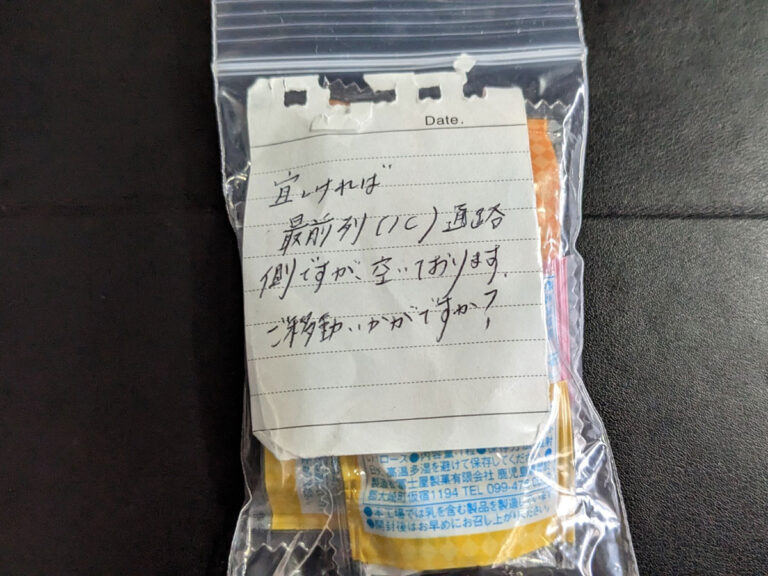 Date.
宜しければ
最前列(1C)通路
側ですが、空いております。
ご移動いかがですか?
ロース●内容量:1粒●保存方法
高温多湿を避けて保存してくださ
富士屋製菓有限会社 鹿児島
郡大崎町仮宿1194 TEL 099-47
●本工場では乳を含む製品を製造しています
●開封後はお早めにお召し上がりください